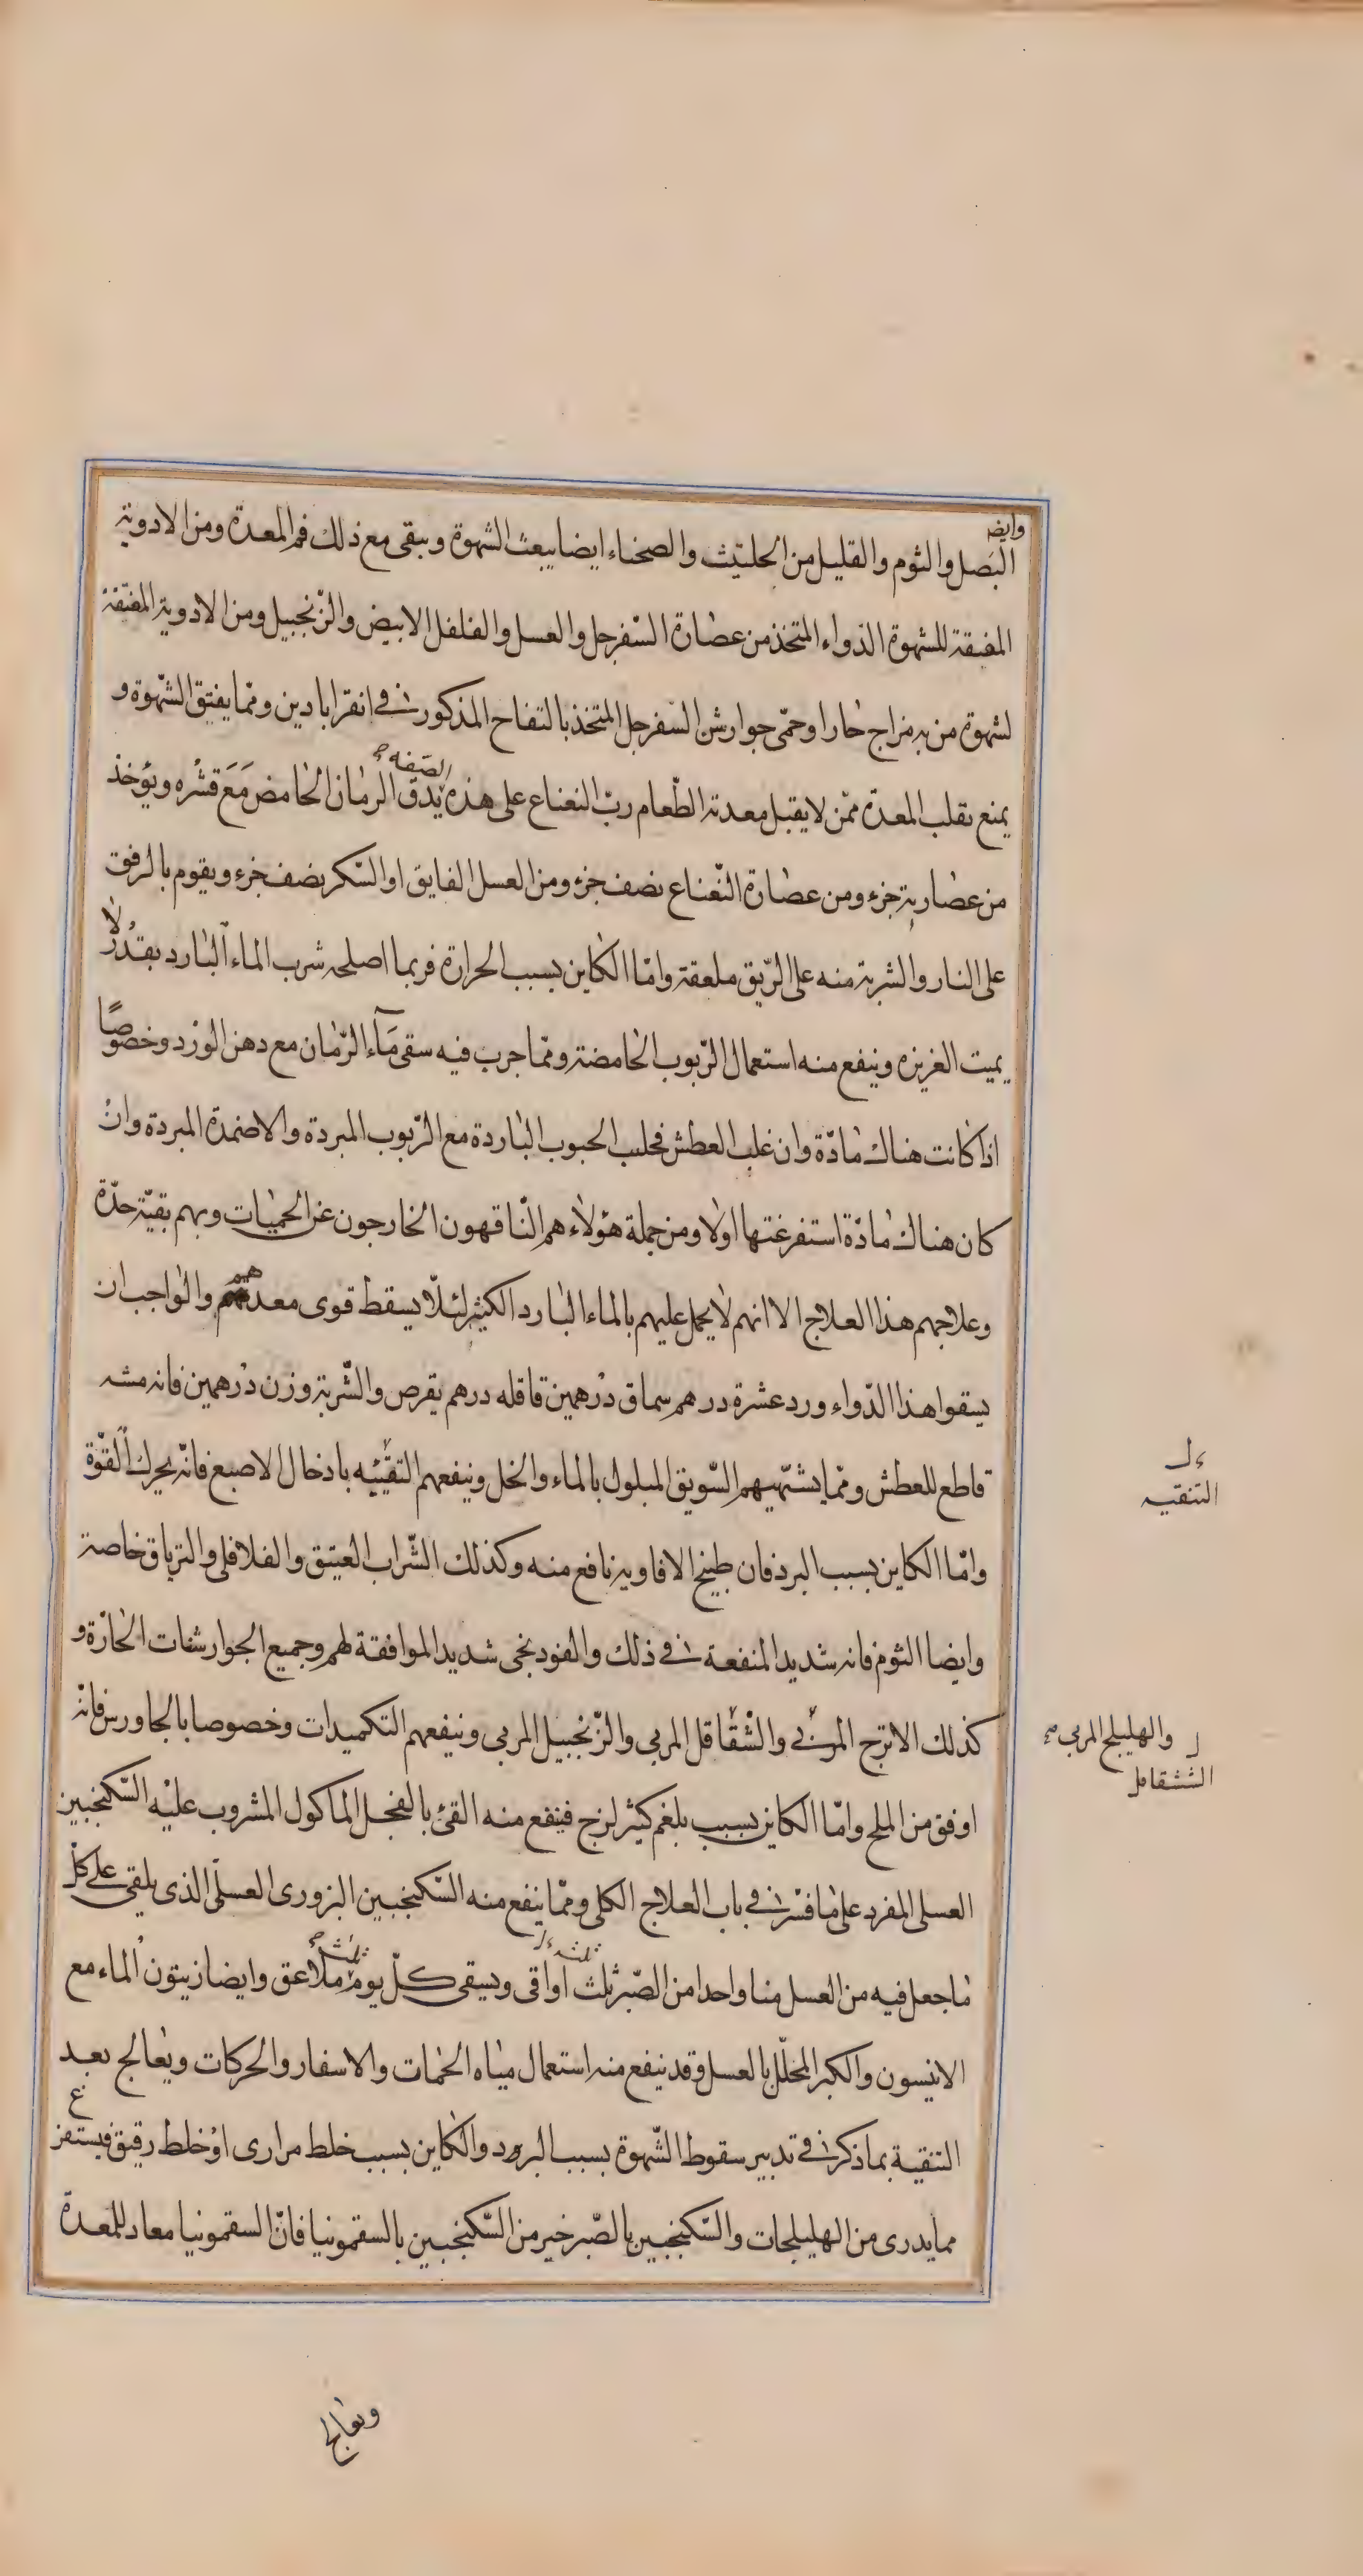 وايضا
البصل والثوم والقليل من الحلتيت والصحناء ايضا يبعث الشهوة وينقى مع ذلك فم المعدة ومن الادوية
المفتقة للشهوة الدواء المتخذ من عصارة السّفرجل والعسل والفلفل الابيض والزّنجبيل ومن الادوية المفتقة
لشهوة من به مزاج حار او حمّى جوارشن السّفرجل المتخذ بالتفاح المذكور فى انقرابادين وممّا يفتق الشّهوة و
يمنع تقلب المعدة ممّن لا يقبل معدته الطّعام ربّ النعناع على هذه الصّفة يدق الرمان الحامض مَعَ قشره ويؤخذ
من عصارته جزء ومن عصارة النّعناع نصف جزء ومن العسل الفايق او السّكر نصف جزء ويقوم بالرفق
على النار والشربة منه على الرّيق ملعقة وامّا الكاين بسبب الحرارة فربما اصلحه شرب الماء البارد بقدر لا
يميت الغريزه وينفع منه استعمال الرّبوب الحامضة وممّا جرب فيه سقى مَآء الرّمان مع دهن الورد وخصوصًا
اذا كانت هناك مادّة وان غلب العطش فحليب الحبوب الباردة مع الرّبوب المبردة والاضمدة المبردة وان
كان هناك مادّة استفرغتها اولا ومن جملة هؤلاء هم النّاقهون الخارجون عن الحميات وبهم بقيّة حدّة
وعلاجهم هذا العلاج الا انهم لا يحمل عليهم بالماء البارد الكثير لئلّا يسقط قوى معدهم والواجب ان
يسقوا هذا الدّواء ورد عشرة درهم سماق درهمين قاقله درهم يقرص والشّربة وزن درهمين فانه مشه
قاطع للعطش وممّا يشهّيهم السّويق المبلول بالماء والخل وينفعهم التقيّئه بادخال الاصبع فانّه يحرك القوّة
وامّا الكاين بسبب البرد فان طبيخ الافاويه نافع منه وكذلك الشّراب العتيق والفلافلى والترياق خاصة
وايضا الثوم فانه شديد المنفعة فى ذلك والفودنجى شديد الموافقة لهم وجميع الجوارشنات الحارّة و
كذلك الاترج المربى والشّقاقل المربى والزّنجبيل المربى وينفعهم التكميدات وخصوصا بالجاورس فانه
اوفق من الملح وامّا الكاين بسبب بلغم كثير لزج فينفع منه القئ بالفجل الماكول المشروب عليه السّكنجبين
العسلى المفرد على ما فسر فى باب العلاج الكلى وممّا ينفع منه السّكنجبين البزورى العسلى الذى يلقى على كل
ما جعل فيه من العسل منا واحدا من الصّبر ثلث اواقى ويسقى كلّ يوم ثلث ملاعق وايضا زيتون الماء مع
الانيسون والكبر المخلل بالعسل وقد ينفع منه استعمال مياه الحمات والاسفار والحركات ويعالج بعد
التنقية بما ذكر فى تدبير سقوط الشّهوة بسبب البرد والكاين بسبب خلط مرارى او خلط رقيق فيستفرغ
مما يدرى من الهليلجات والسّكنجبين بالصّبر خير من السّكنجبين بالسقمونيا فانّ السقمونيا معاد للمعدة
التنقيه
والهليلج المربى
الششقاقل
ويعالج